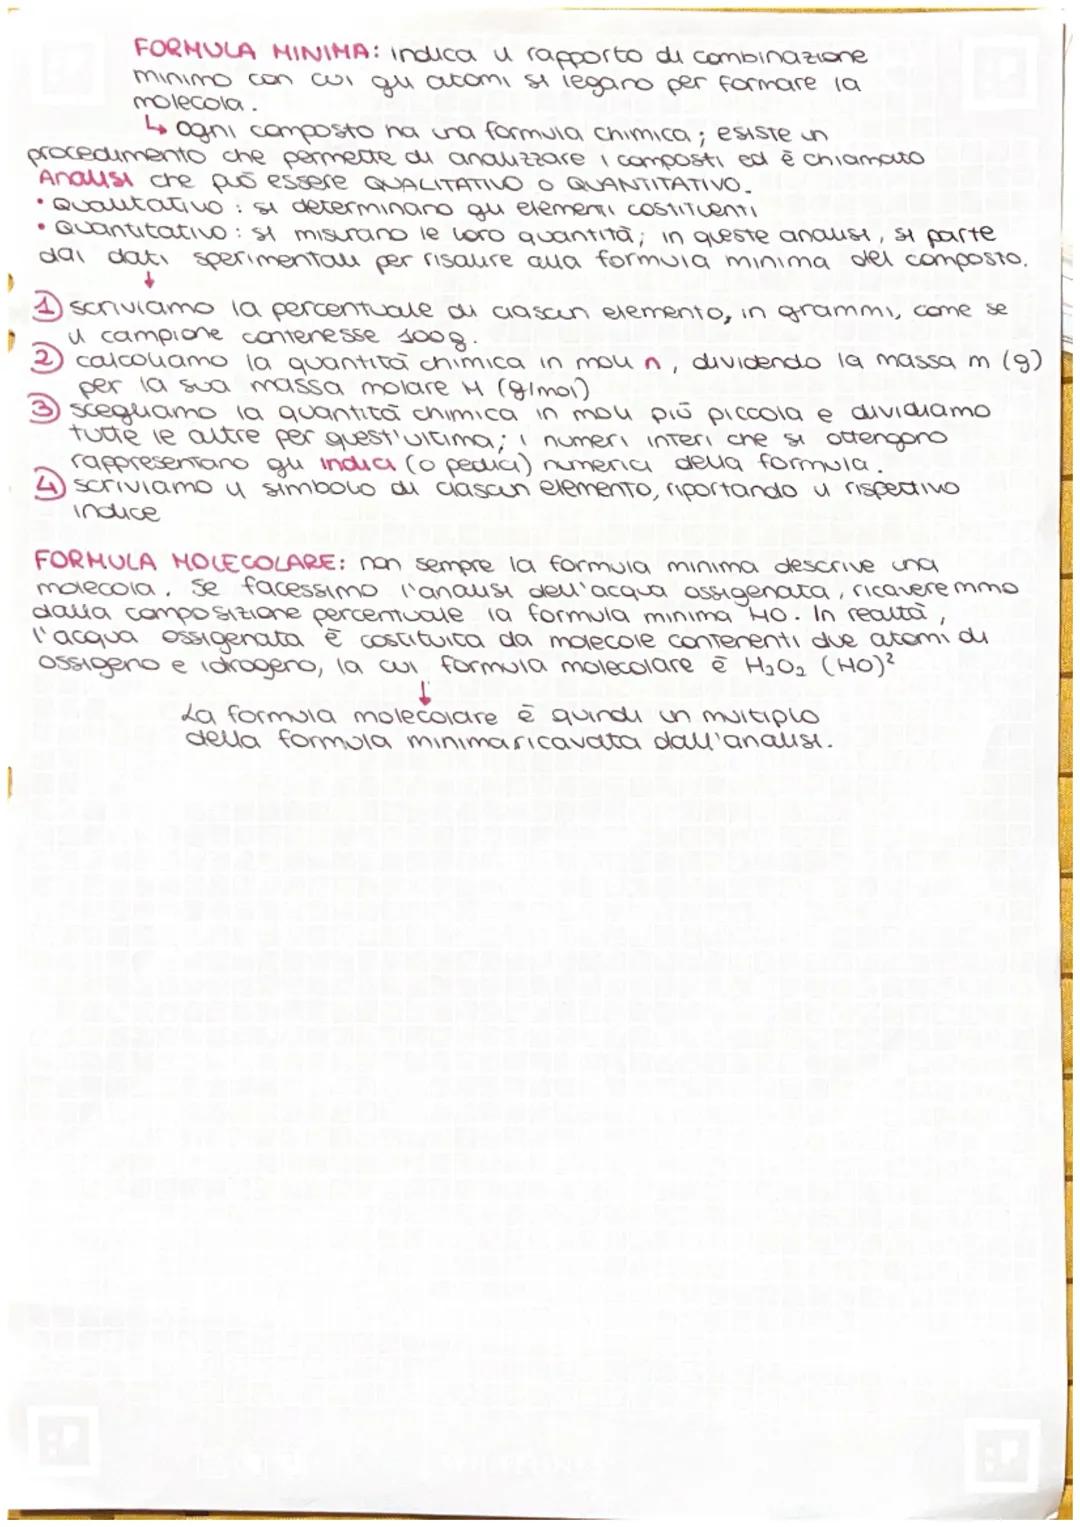 FORMULA MINIMA: indica il rapporto di combinazione
minimo con cui gli atomi si legano per formare la
molecola.
↳ Ogni composto ha una formula chimica; esiste un
procedimento che permette di analizzare i composti ed è chiamato
Analisi che può essere QUALITATIVO O QUANTITATIVO.
• Qualitativo: si determinano gli elementi costituenti
• Quantitativo: si misurano le loro quantità; in queste analisi, si parte
dai dati sperimentali per risalire alla formula minima del composto.
↓
1 scriviamo la percentuale di ciascun elemento, in grammi, come se
il campione contenesse 100g.
2 calcoliamo la quantità chimica in moli n, dividendo la massa m (g)
per la sua massa molare M (g/mol)
3 scegliamo la quantità chimica in moli più piccola e dividiamo
tutte le altre per quest'ultima; i numeri interi che si ottengono
rappresentano gli indici (o pedici) numerici della formula.
4 scriviamo il simbolo di ciascun elemento, riportando il rispettivo
indice
FORMULA MOLECOLARE: non sempre la formula minima descrive una
molecola. Se facessimo l'analisi dell'acqua ossigenata, ricaveremmo
dalla composizione percentuale la formula minima HO. In realtà,
l'acqua ossigenata è costituita da molecole contenenti due atomi di
ossigeno e idrogeno, la cui formula molecolare è H₂O₂ (HO)²
↓
La formula molecolare è quindi un multiplo
della formula minima ricavata dall'analisi.